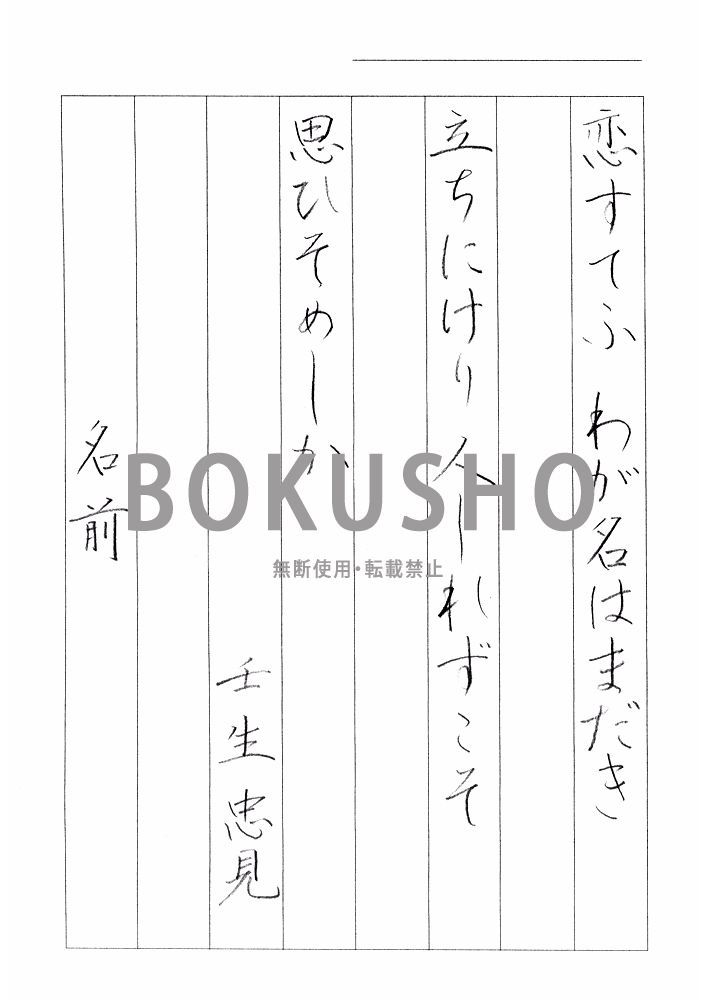 恋すてふ わが名はまだき
立ちにけり 人しれずこそ
思ひそめしか
壬生忠見
名前
BOKUSHO
無断使用・転載禁止